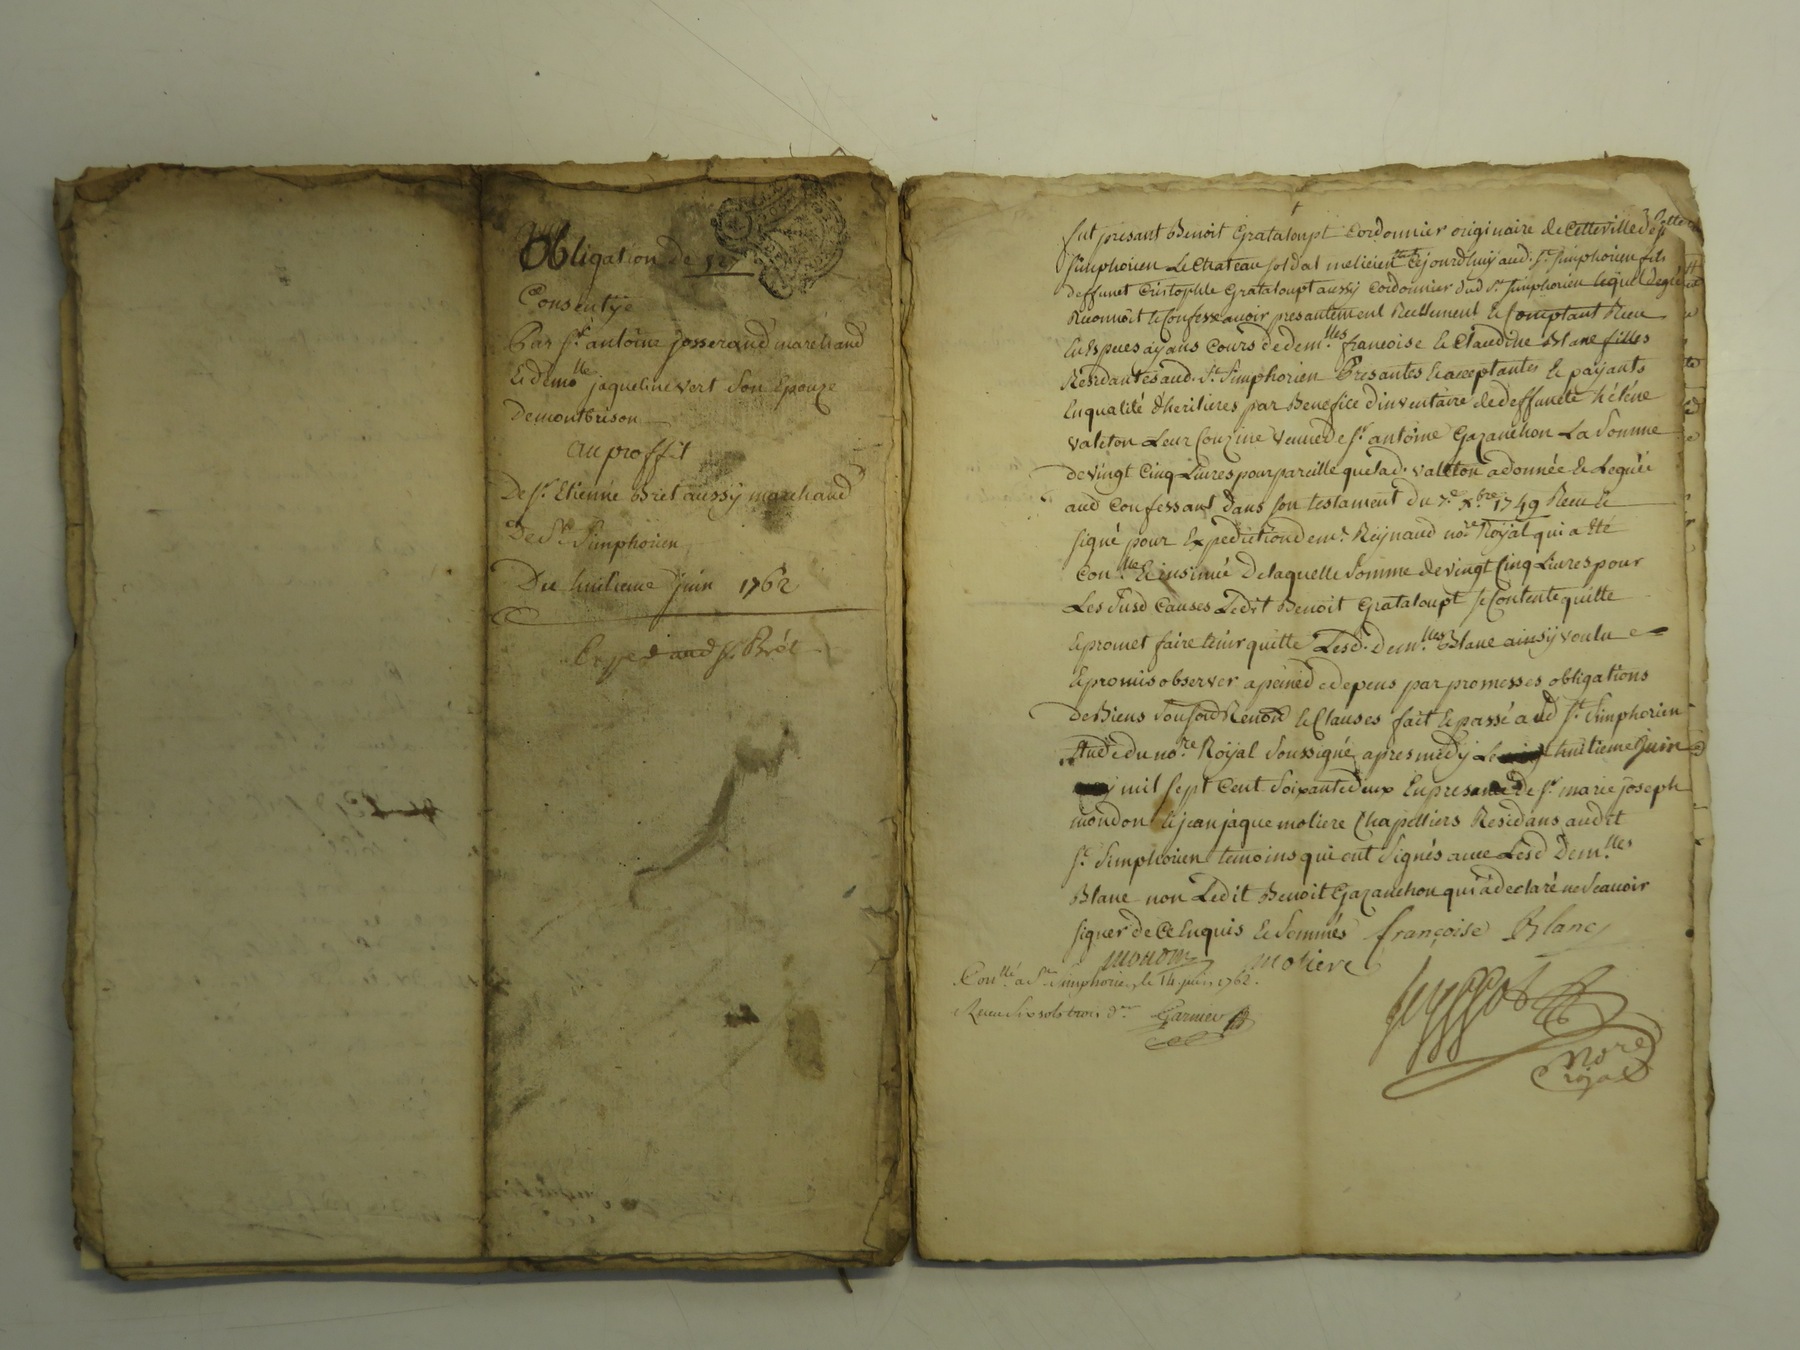 Obligation de 127 ll
Consentye
Par Sr. antoine josserand marchand
Et demolle jaqueline vert Son Epouze
Demontbrison
au proffit
De Sr. Etienne Bret aussy marchand
De St. Simphorien
Du huitieme juin 1762
Exped aud Sr. Brét
fut présant Benoit Grataloupt Cordonnier originaire de Cetteville de St
Simphorien Le Chateau soldat melicien cejourdhuy aud. St. Simphorien fils
deffunct Cristophle Grataloupt aussy Cordonnier dud St. Simphorien lequel degré
Reconnoit Et Confesse avoir presantement Reellement Et Comptant Receu
En Espuces ayans Cours de demlles francoise Et Claudine Blanc filles
Residantes aud. St. Simphorien Présantes Et acceptantes Et payants
Enqualité dheritieres par Benefice dinventaire de deffuncte hélène
valeton Leur Couzine veuve de Sr. antoine Gazanchon La Somme
de vingt Cinq Livres pour pareille que lad. valeton a donnée Et Leguée
aud Confessant Dans son testament du 7e. xbre. 1749 Receu Et
signé pour Expedition de me. Reynaud nore. Royal qui a Eté
Conllé Et insinué De laquelle Somme de vingt Cinq Livres pour
Les Susd Causes Ledit Benoit Grataloupt Se Contente quitte
Et promet faire tenir quitte Lesd. demlles Blanc ainsy voulu
Et promis observer a peine de depens par promesses obligations
De Biens Sousd Renon Et Clauses fait Et passé aud St. Simphorien
Etude du nore Royal Soussigné apres midy Le huitieme juin
mil sept Cent Soixante deux En presance de Sr. marie joseph
mondon Et jean jaque moliere Chapelliers Residans audit
St. Simphorien temoins qui ont Signés avec Lesd Demlles
Blanc non Ledit Benoit Gazanchon qui a declaré ne Scavoir
signer de Ce Enquis Et Sommés françoise Blanc
mondon moliere
Conllé a St. Simphorien le 14 juin 1762.
Receu six sols trois drs Garnier
nore
royal